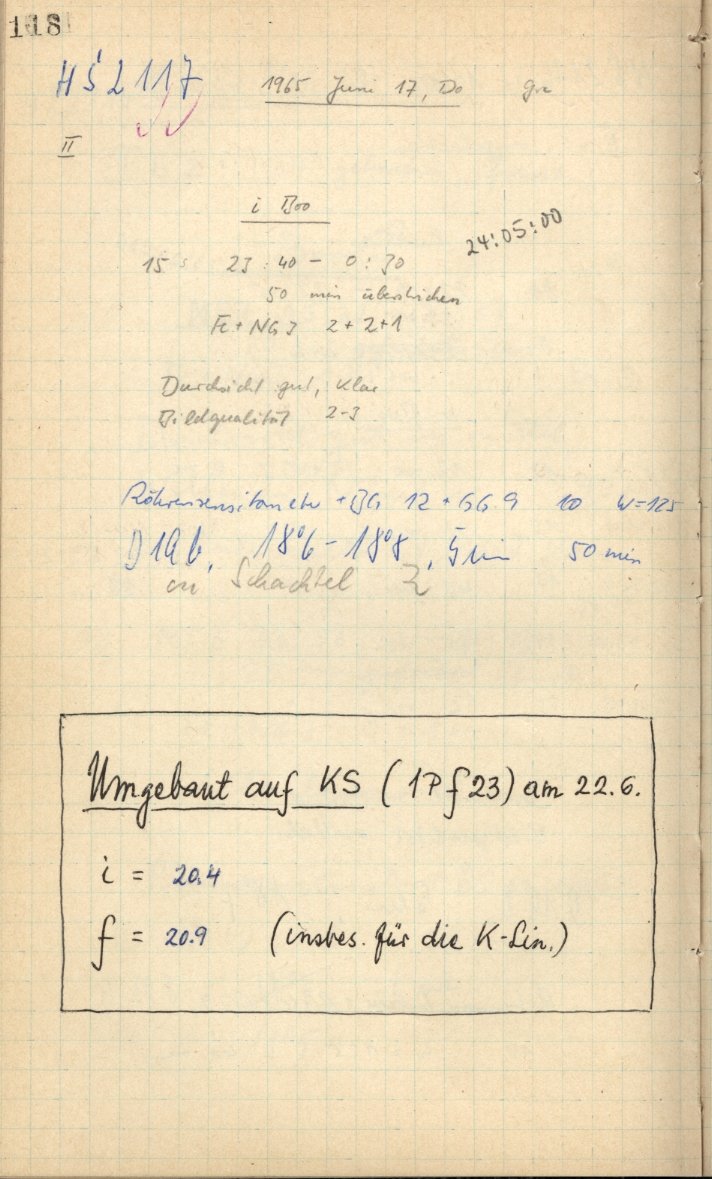 118
HS 2117 1965 Juni 17, Do Gre
II
i Boo
24:05:00
15 s 23:40 - 0:30
50 min überstrichen
Fe + NG 3 2+2+1
Durchsicht gut, klar
Bildqualität 2-3
Röhrensensitometer + BG 12 + GG 9 10 W=125
D19b, 18°6 - 18°8, 5 min 50 min
in Schachtel 2
Umgebaut auf KS (1Pf23) am 22.6.
i = 20.4
f = 20.9 (insbes. für die K-Lin.)